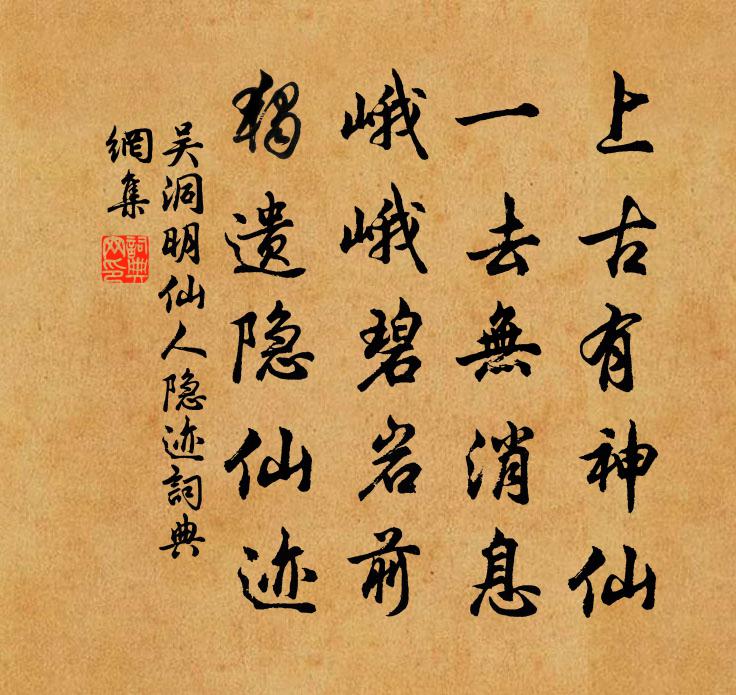 上古有神仙
一去無消息
峨峨碧岩前
独遗隐仙迹
吴洞明仙人隐迹詞典
網集
詞典
网印